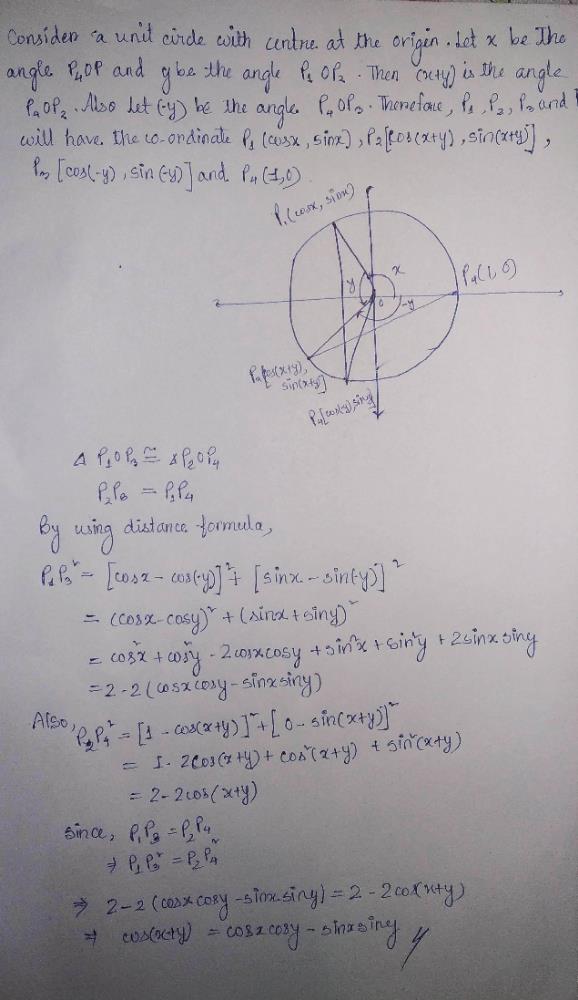 Consider a unit circle with centre at the origin. Let x be The
angle P₄OP and y be the angle P₁OP₂. Then (x+y) is the angle
P₄OP₂. Also let (-y) be the angle P₄OP₃. Therefore, P₁, P₂, P₃ and
will have the co-ordinate P₁ (cosx, sinx), P₂[cos(x+y), sin(x+y)],
P₃ [cos(-y), sin(-y)] and P₄ (1,0).
P₁(cosx, sinx)
x
P₄(1,0)
y
0
-y
P₂[cos(x+y),
sin(x+y)]
P₄[cos(-y), sin-y]
Δ P₁OP₃ ≅ ΔP₂OP₄
P₂P₃ = P₁P₄
By using distance formula,
P₁P₃² = [cosx - cos(-y)]² + [sinx - sin(-y)]²
= (cosx-cosy)² + (sinx+siny)²
= cos²x + cos²y - 2cosxcosy + sin²x + sin²y + 2sinx siny
= 2-2(cosxcosy-sinxsiny)
Also, P₂P₄² = [1 - cos(x+y)]² + [0 - sin(x+y)]²
= 1 - 2cos(x+y) + cos²(x+y) + sin²(x+y)
= 2-2cos(x+y)
since, P₁P₃ = P₂P₄
⇒ P₁P₃² = P₂P₄²
⇒ 2-2(cosxcosy-sinx.siny) = 2-2cos(x+y)
⇒ cos(x+y) = cosxcosy - sinxsiny